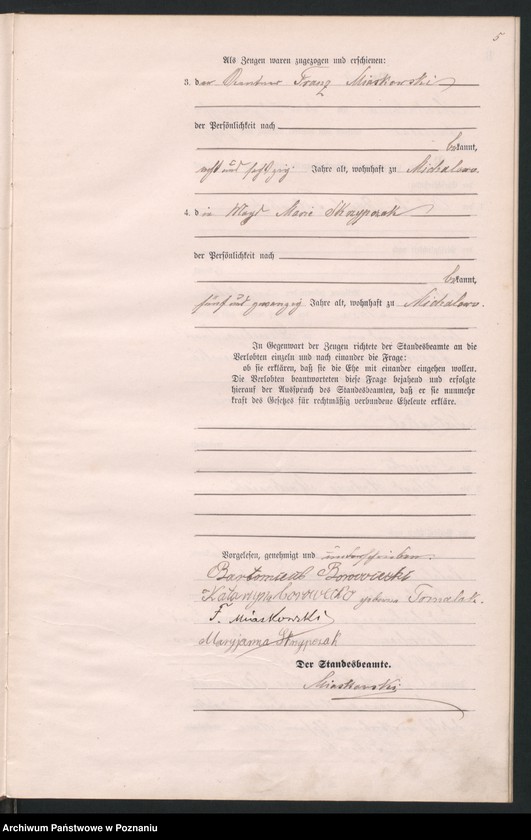 5
Als Zeugen waren zugezogen und erschienen:
3. der Rentner Franz Miaskowski
der Persönlichkeit nach
bekannt,
acht und sechszig Jahre alt, wohnhaft zu Michalowo.
4. die Magd Marie Skrzypczak
der Persönlichkeit nach
bekannt,
fünf und zwanzig Jahre alt, wohnhaft zu Michalowo.
In Gegenwart der Zeugen richtete der Standesbeamte an die
Verlobten einzeln und nach einander die Frage:
ob sie erklären, daß sie die Ehe mit einander eingehen wollen.
Die Verlobten beantworteten diese Frage bejahend und erfolgte
hierauf der Ausspruch des Standesbeamten, daß er sie nunmehr
kraft des Gesetzes für rechtmäßig verbundene Eheleute erkläre.
Vorgelesen, genehmigt und unterschrieben.
Bartomieab Borowecki
Katarzyna borowecko geborene Tomalak.
F. Miaskowski
Maryjanna Skrypczak
Der Standesbeamte.
Miaskowski
Archiwum Państwowe w Poznaniu